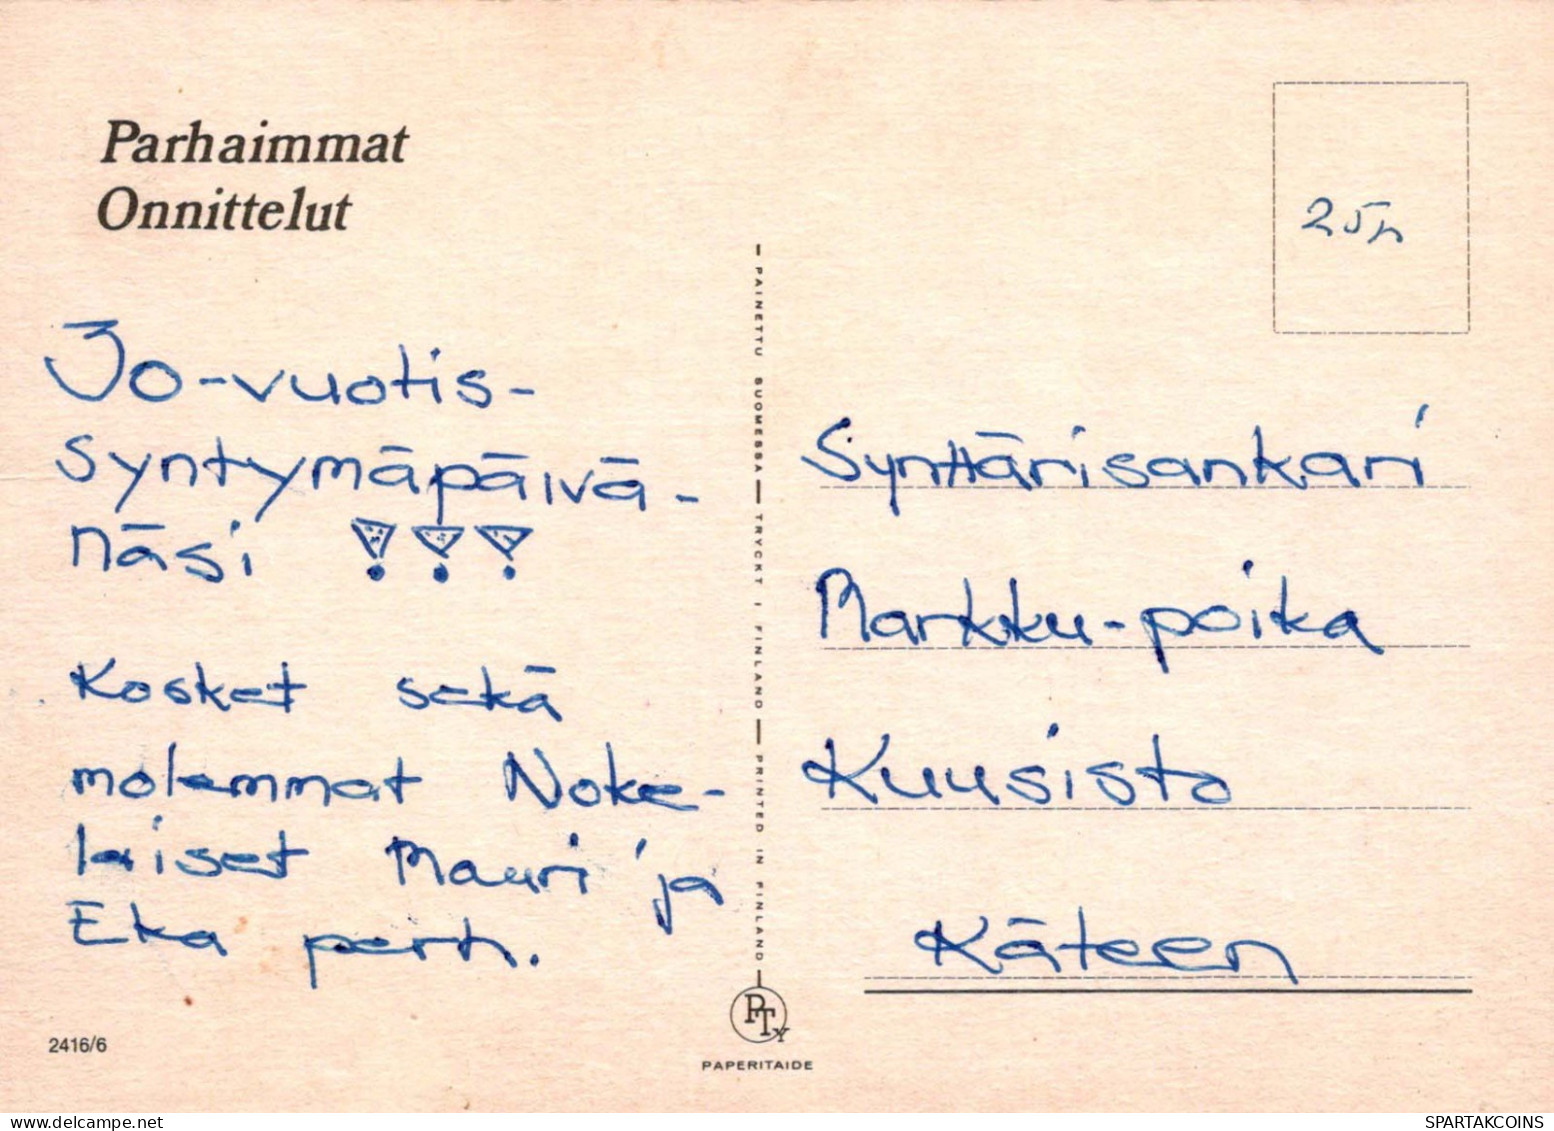 Parhaimmat
Onnittelut
30-vuotis-
syntymäpäivä-
näsi !!!
Kosket sekä
molemmat Noke-
laiset Mauri ja
Eka perh.
2416/6
PAINETTU SUOMESSA — TRYCKT I FINLAND — PRINTED IN FINLAND
PTy
PAPERITAIDE
Synttärisankari
Markku-poika
Kuusisto
Käteen
eBay.com
SPARTAKCOINS